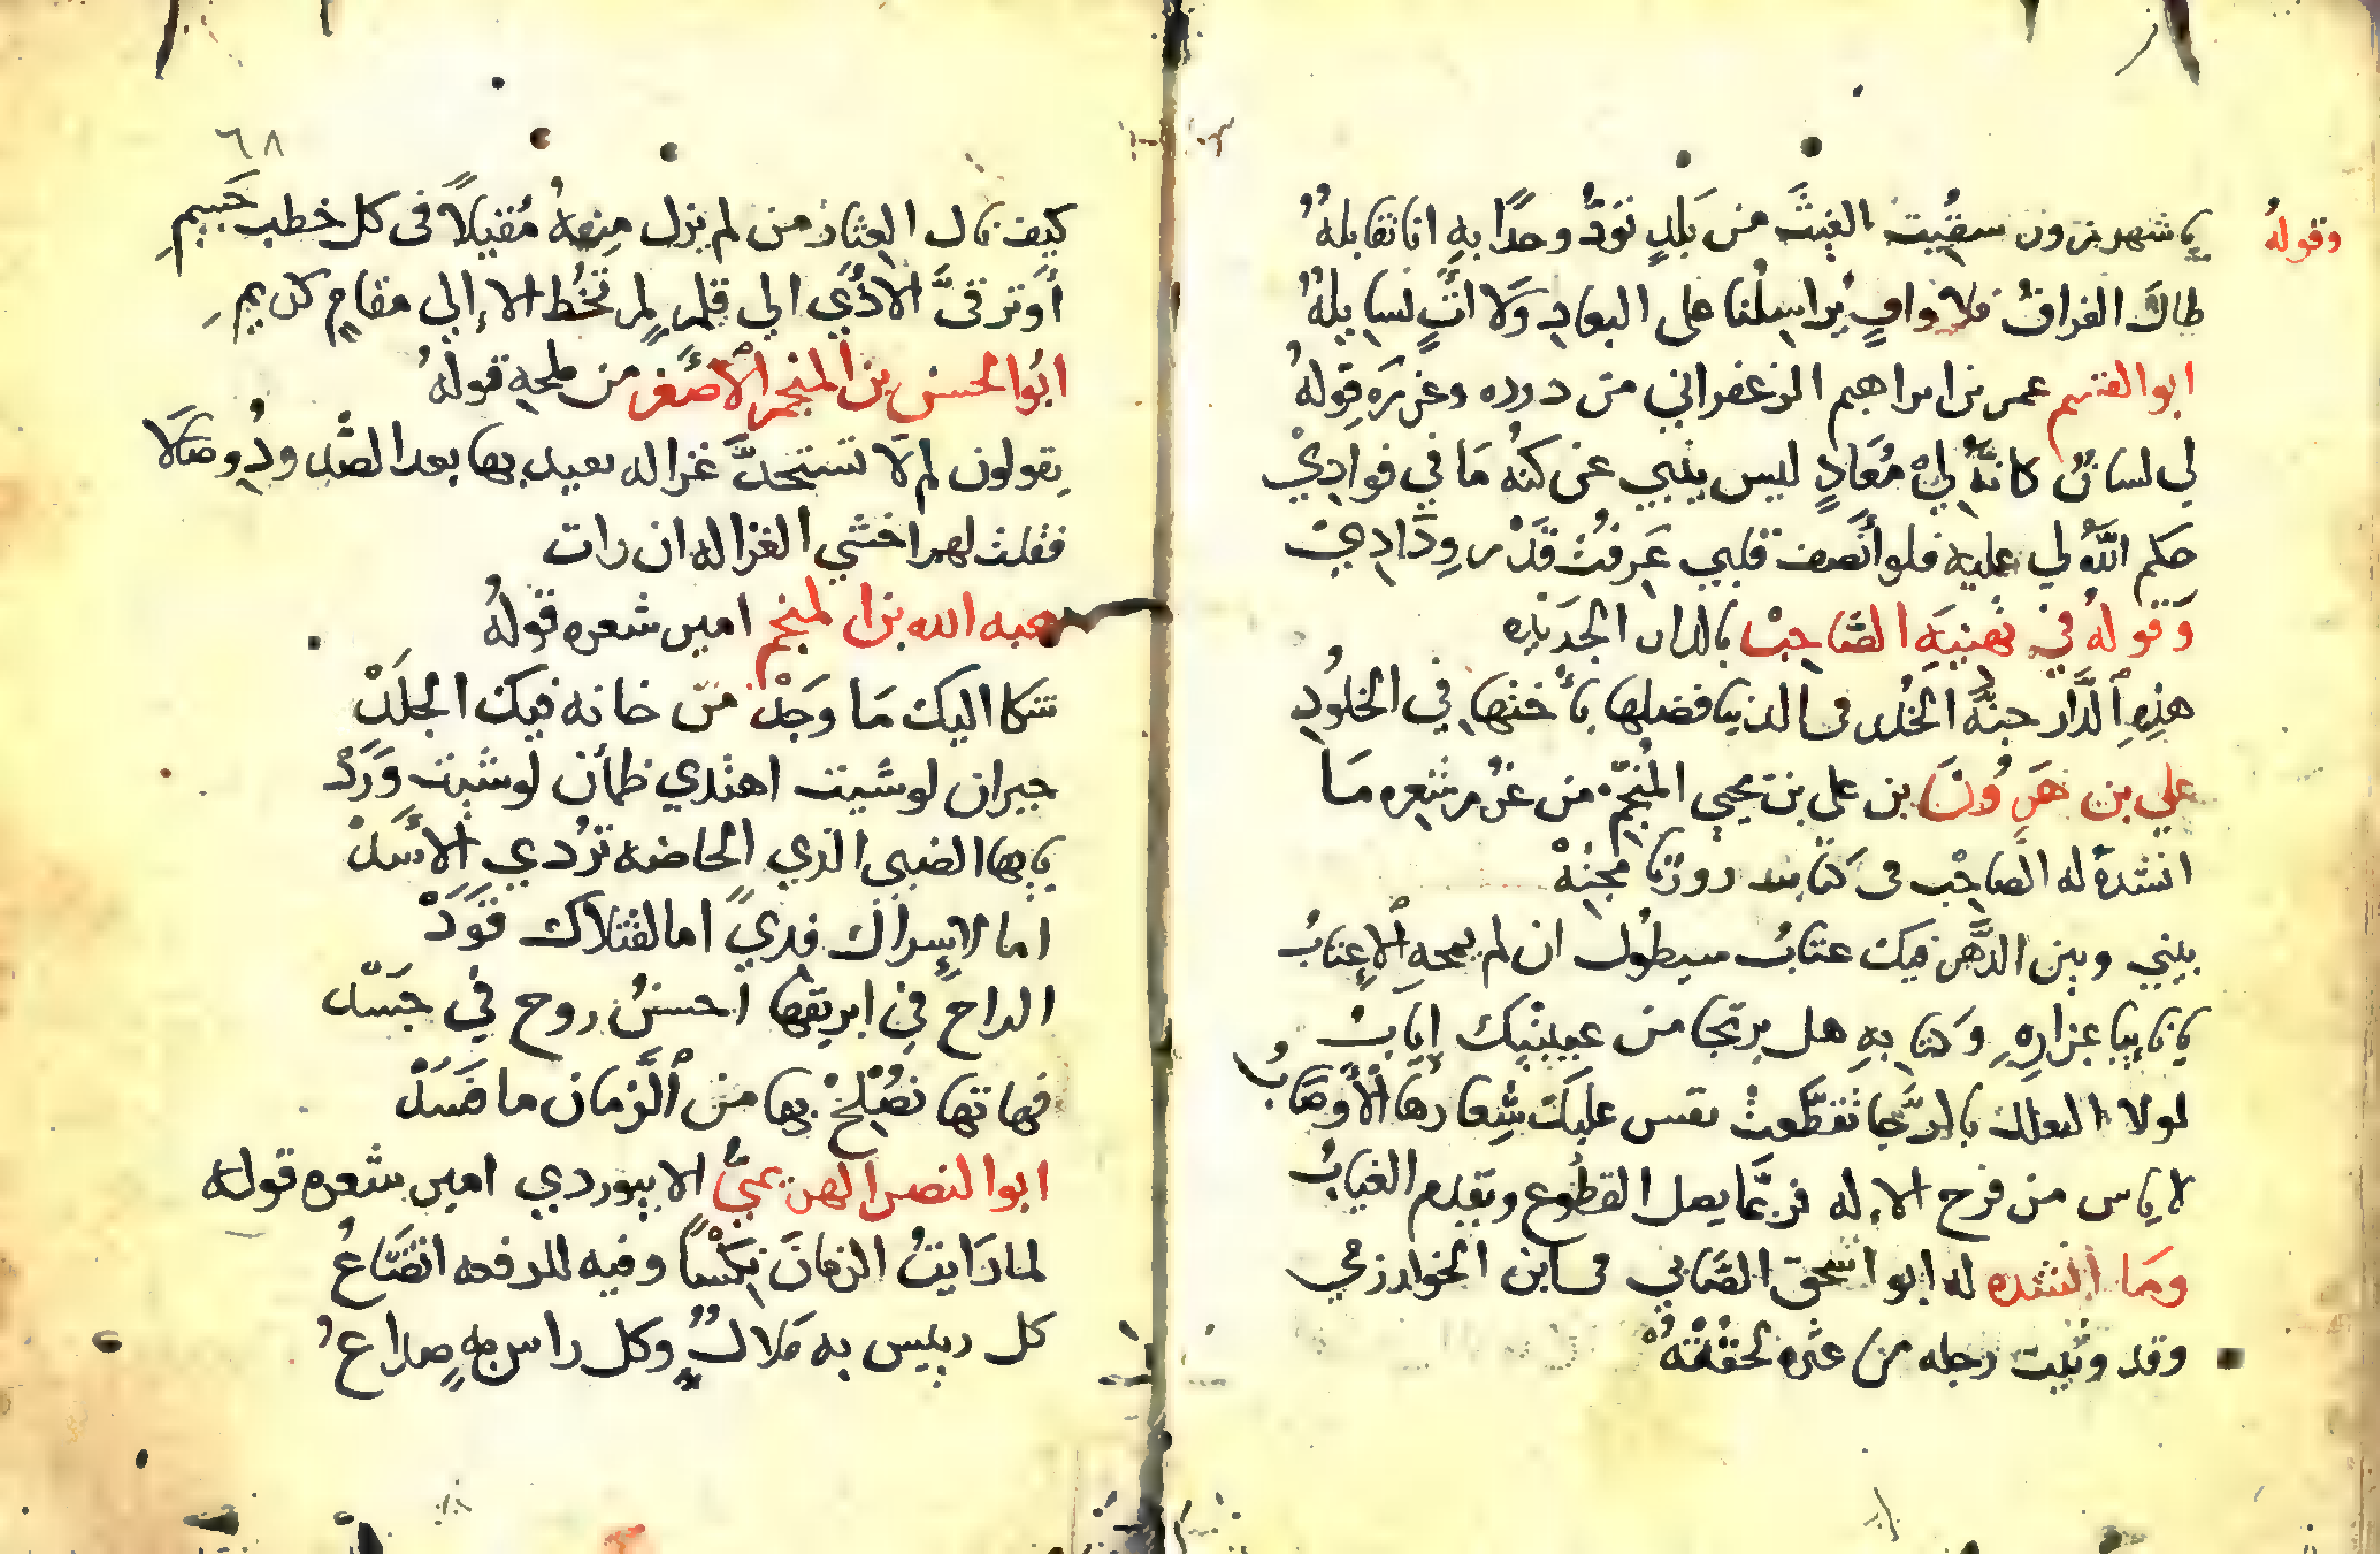 وقوله يا شهرزون سقيت الغيث من بَلدٍ نودُّ وجدًا بهِ انا نقابلهُ
طال الفراقُ فلا وافٍ يُراسِلُنا على البعادِ وَلا آتٍ نسايلهُ
ابو القسم عمر بن ابراهيم الزعفراني من درره وغرره قولهُ
لي لسانٌ كانهُ لِيْ مُعَادٍ ليس ينبي عن كنْه مَا في فوادِيْ
حكم اللهُ لي عليه فلو أنصف قلبي عَرفتُ قَدْر وِدَادِيْ
وَقوله في تهنيَهِ الصَّاحِبْ بالدار الجَديْدِه
هذِهِ ٱلدَّار جنةُ الخُلد فى الدنيا فضلها بأختها في الخلُودِ
علي بن هَرُونَ بن على بن يحيي المُنجّم من غُرر شعره مَا
انشدهُ له الصَّاحِبْ فى كتابه روزنامجِتِهْ
بيني وبين الدَّهر فيك عتابُ سيطولُ ان لم يمحهِ ٱلإعتابُ
يا غايبا بمزارِهِ وكتابهِ هل يرتجا من غيبتيك إيابْ
لولا التعلل بالرَّجا تقطّعتْ نفس عليكَ شِعارها ٱلأوصَابُ
لا ياس من فرج الاله فربمَّا يصل القطُوع ويقدم الغيابُ
ومَا انشده له ابو اسحق الصَّابي فى ابن الخوارزمي
وقد وثيت رجله من عثره لحقتْهُ
٦٨
كيف نال العثار من لم يزل مِنهُ مُقيلاً فى كل خطب جَسِيمِ
أو ترقىَّ الاذَي الي قدمٍ لم تخُط الا إلي مقامٍ كريمِ
ابُو الحسن بن المنجم الأصْغر من ملحهِ قولهُ
يقولون لم لا تستجدَّ غزاله يعيد بها بعد الصَّد ودِ وصَالا
فقلت لهم اخشي الغزاله ان رات
هبه الله بن المنجم امير شعره قولهُ
شكا اليك مَا وَجَدْ من خانه فيك الجلَدْ
حيران لو شيت اهتدي ظمأن لو شيت وَرَدْ
يايها الضبي الذي الحاضه تُردي الأسَدْ
اما لإسراك فدىً اما لقتلاك قَوَدْ
الراح في ابريقها احسنُ روح في جَسَدْ
فهاتها نصْلِحْ بها من ٱلزَّمان ما فَسَدْ
ابو النصر الهزيميُّ الابيوردي امير شعره قوله
لما رَايتُ الزمَانَ نِكْسًا وفيه للرفعه اتضَاعُ
كل رييس به مَلالٌ وكل راس بهِ صداعُ